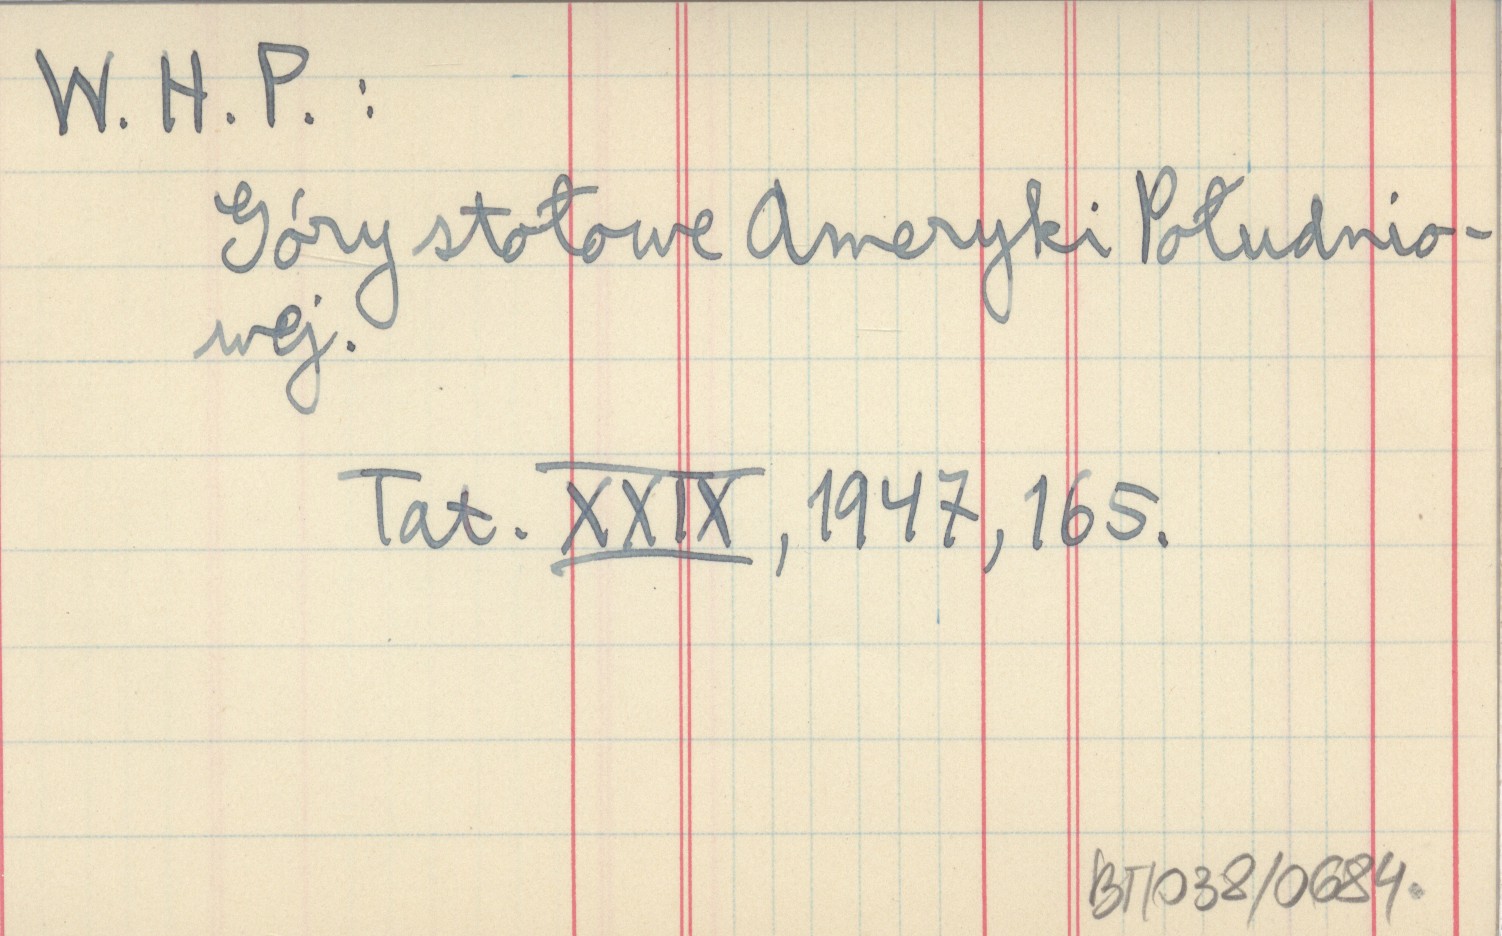 W. H. P. :
Góry stołowe Ameryki Południo-
wej.
Tat. XXIX, 1947, 165.
ВП038/0684.